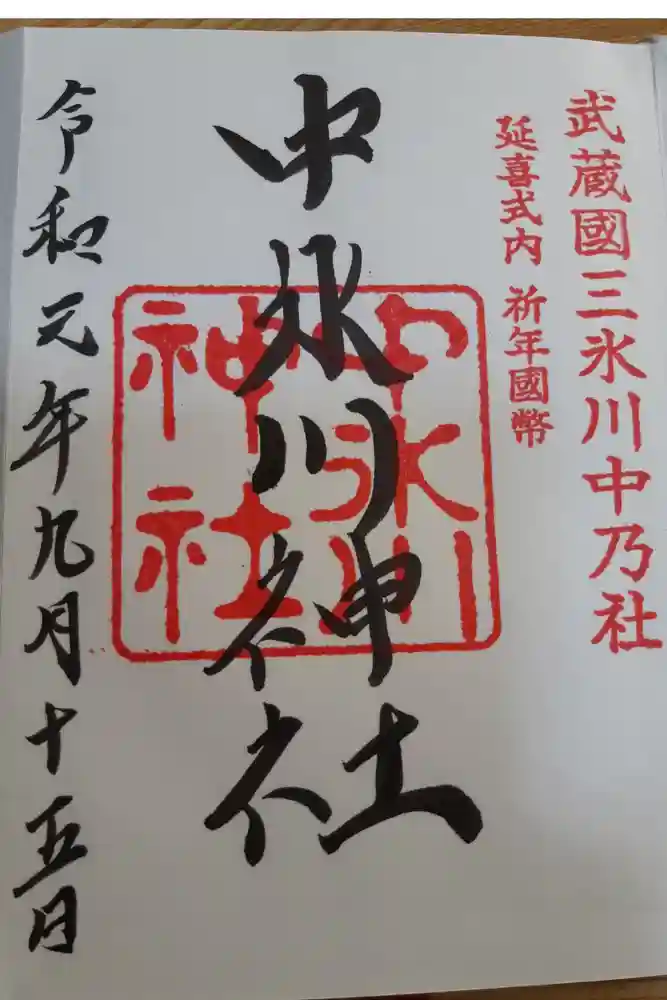 武蔵國三氷川中乃社
延喜式内 祈年國幣
中氷川神社
中氷川
神社
令和元年九月十五日